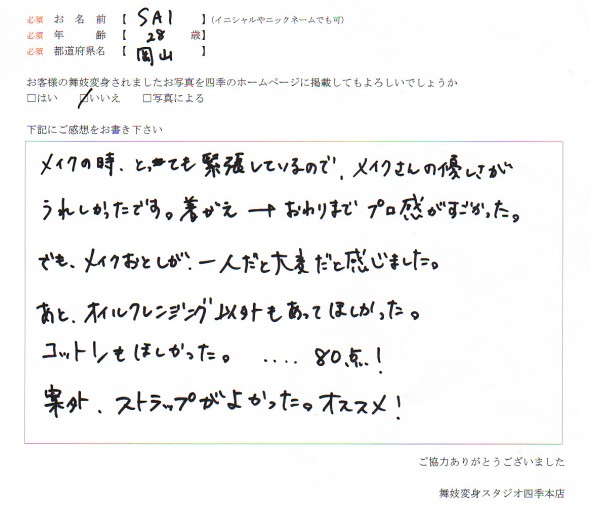 必須 お名前 【 SAI 】(イニシャルやニックネームでも可)
必須 年齢 【 28 歳】
必須 都道府県名 【 岡山 】
お客様の舞妓変身されましたお写真を四季のホームページに掲載してもよろしいでしょうか
□はい ☑いいえ □写真による
下記にご感想をお書き下さい
メイクの時、とっても緊張しているので、メイクさんの優しさが
うれしかったです。着がえ → おわりまで プロ感がすごかった。
でも、メイクおとしが、一人だと大変だと感じました。
あと、オイルクレンジング以外もあってほしかった。
コットンもほしかった。 .... 80点!
案外、ストラップがよかった。オススメ!
ご協力ありがとうございました
舞妓変身スタジオ四季本店